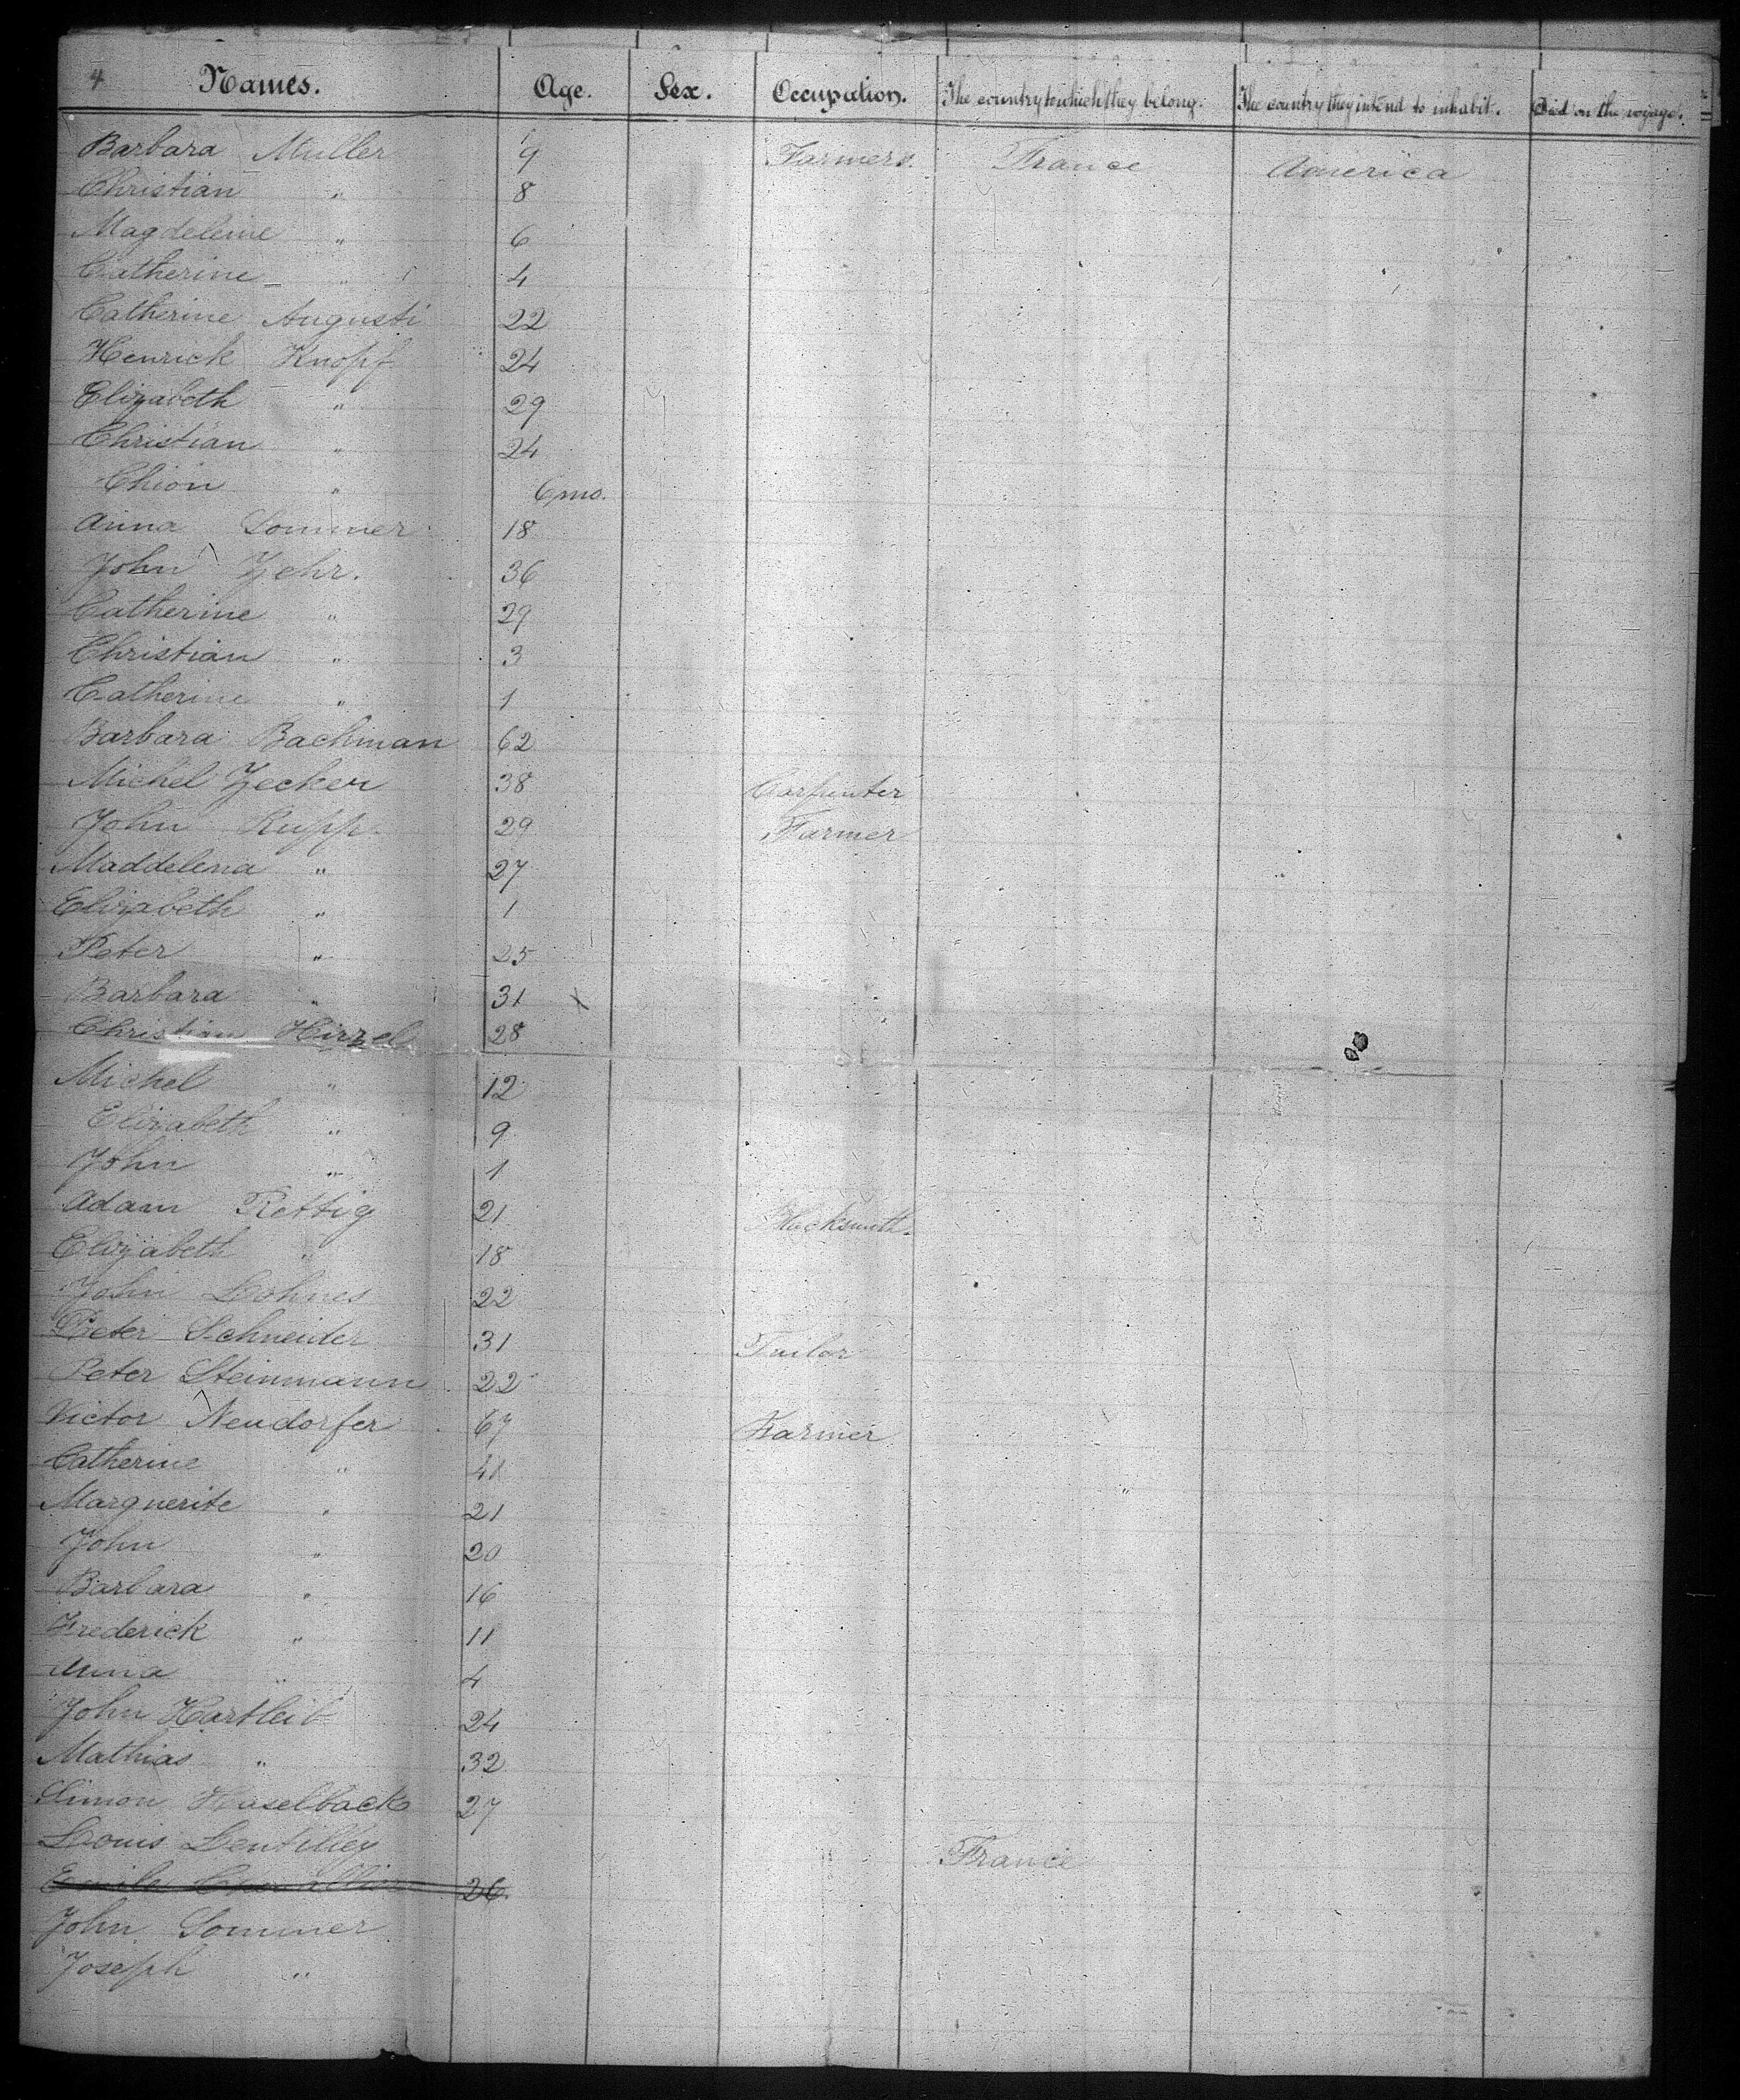 4 Names. Age. Sex. Occupation. The country to which they belong. The country they intend to inhabit. Died on the voyage.
Barbara Muller 9 Farmers. France America
Christian " 8
Magdeleine " 6
Catherine " 4
Catherine Augusti 22
Henrick Knopf 24
Elizabeth " 29
Christian " 24
Chion " 6 mo.
Anna Sommer 18
John Zehr. 36
Catherine " 29
Christian " 3
Catherine " 1
Barbara Bachman 62
Michel Zecker 38 Carpenter
John Rupp. 29 Farmer
Maddelena " 27
Elizabeth " 1
Peter " 25
Barbara " 31
Christian Hirzel 28
Michel " 12
Elizabeth " 9
John " 1
Adam Rettig 21 Blacksmith.
Elizabeth " 18
John Lohnes 22
Peter Schneider 31 Tailor
Peter Steinmann 22
Victor Neudorfer 67 Farmer
Catherine " 41
Marguerite " 21
John " 20
Barbara " 16
Frederick " 11
Anna " 4
John Hartleib 24
Mathias " 32
Simon Haselback 27
Louis Lentilley France
Emile 26
John Sommer
Joseph "